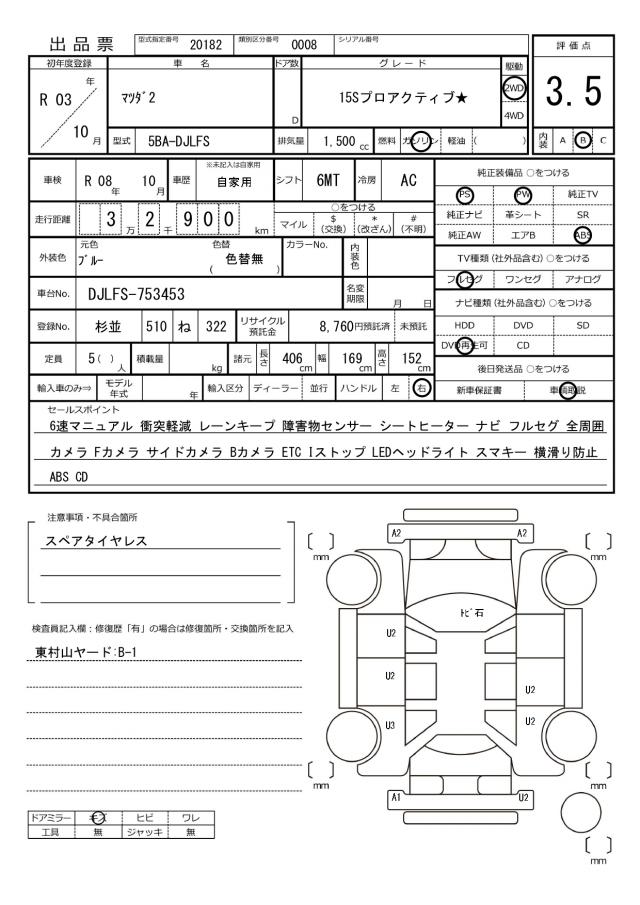 出品票
型式指定番号 20182 類別区分番号 0008 シリアル番号
評価点
3.5
内装 A B C
初年度登録 車名 ドア数 グレード 駆動
R 03 年 10 月
マツダ2 D 15Sプロアクティブ★ 2WD 4WD
型式 5BA-DJLFS 排気量 1,500 cc 燃料 ガソリン 軽油 ( )
車検 R 08 年 10 月 車歴 ※未記入は自家用 自家用 シフト 6MT 冷房 AC
走行距離 3 万 2 千 9 0 0 km
○をつける
マイル $ (交換) * (改ざん) # (不明)
外装色 元色 ブルー 色替 ( 色替無 ) カラーNo. 内装色
車台No. DJLFS-753453 名変期限 月 日
登録No. 杉並 510 ね 322 リサイクル預託金 8,760円預託済 未預託
定員 5 ( ) 人 積載量 kg 諸元 長さ 406 cm 幅 169 cm 高さ 152 cm
輸入車のみ⇒ モデル年式 年 輸入区分 ディーラー ・ 並行 ハンドル 左 右
純正装備品 ○をつける
PS PW 純正TV
純正ナビ 革シート SR
純正AW エアB ABS
TV種類 (社外品含む) ○をつける
フルセグ ワンセグ アナログ
ナビ種類 (社外品含む) ○をつける
HDD DVD SD
DVD再生可 CD
後日発送品 ○をつける
新車保証書 車輌取説
セールスポイント
6速マニュアル 衝突軽減 レーンキープ 障害物センサー シートヒーター ナビ フルセグ 全周囲
カメラ Fカメラ サイドカメラ Bカメラ ETC Iストップ LEDヘッドライト スマキー 横滑り防止
ABS CD
注意事項・不具合箇所
スペアタイヤレス
検査員記入欄：修復歴「有」の場合は修復箇所・交換箇所を記入
東村山ヤード:B-1
ドアミラー キズ ヒビ ワレ
工具 無 ジャッキ 無
A2 A2
[ ] mm [ ] mm
トビ石
U2
U2
U3 U2
[ ] mm [ ] mm
A1 U2
[ ] mm